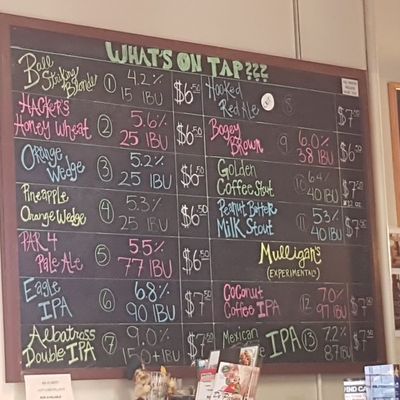 WHAT'S ON TAP???
Ball
Striking
Blonde
1
4.2%
15 IBU
$6.50
HACKER'S
Honey Wheat
2
5.6%
25 IBU
$6.50
Orange
Wedge
3
5.2%
25 IBU
$6.50
Pineapple
Orange Wedge
4
5.3%
25 IBU
$6.50
PAR 4
Pale Ale
5
5.5%
77 IBU
$6.50
Eagle
IPA
6
6.8%
90 IBU
$7.50
Albatross
Double IPA
7
9.0%
150+ IBU
$7.50
Hooked
Red Ale
8
$7.50
Bogey
Brown
9
6.0%
38 IBU
$6.50
Golden
Coffee Stout
10
6.4%
40 IBU
$7.50
Peanut Butter
Milk Stout
11
5.3%
40 IBU
$7.50
Mulligan's
(EXPERIMENTAL)
Coconut
Coffee IPA
12
7.0%
97 IBU
$7.50
Mexican
IPA
13
7.2%
87 IBU
$7.50